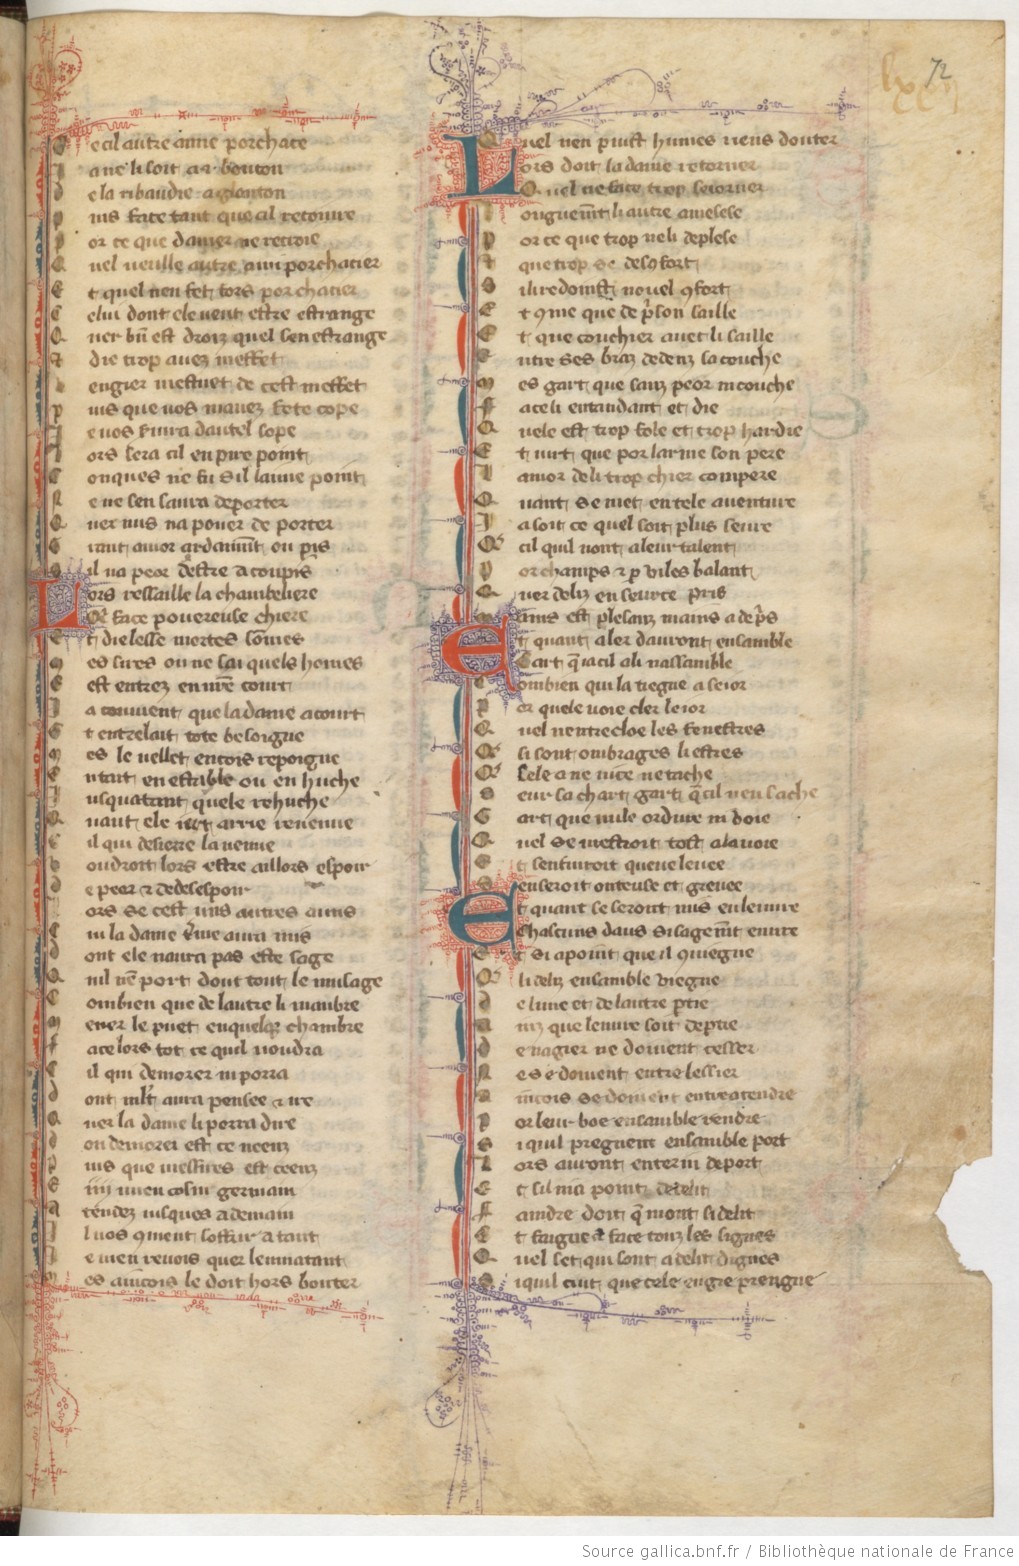 lxxii
72
e cil autre amie porchace
a ne li soit a i bouton
e la ribaudie a glouton
uis face tant que cil retouure
or ce que damer ne recroie
uel ueulle autre ami porchacier
t quel nen fet fors porchacier
elui dont ele ueut estre estrange
uer bn est droiz quel sen estrange
die trop auez meffet
engier mestuet de cest meffet
uis que uos mauez fete cope
e uos feura dautel sope
ors sera cil en pire point
onques ne fu sil laime point
e ne sen saura deporter
uer nus na pouer de porter
tant amor ardanmt ou pis
il na peor destre acoupis
Lors ressaille la chamberiere
Qr face poureuse chiere
t die lesse mortes somes
es sires ou ne sai quels homes
est entrez en nre court
a conuient que la dame acourt
t entrelait tote besoigne
es le uellet encois repoigne
ntait en estable ou en huche
usquatant quele rehuche
uant ele iert arrie reuenue
il qui desierre la uenue
oudroit lors estre aillors espoir
e peor et de desespoir
ors se cest uns autres amis
ui la dame terme aura mis
ont ele naura pas este sage
uil nen port dout tout le musage
ombien que de lautre li manbre
ener le puet en quelque chambre
ace lors tot ce quil uoudra
il qui demorer ni porra
ont mlt aura pensee et ire
uer la dame li porra dire
ou demorer est ce neenz
uis que mes sires est ceenz
iiij mien cosin germain
tendez iusques a demain
l uos quient soffrir a tant
e uien reuois quer lemnatant
es aincois le doit hors bouter
Quel nen puist humes riens douter
Lors doit la dame retorner
Quel ne face trop seiorner
onguemt li autre a mesese
or ce que trop ne li desplese
que trop se desqfort
ili redoinst nouel qfort
t qme que de prson saille
t que couchier auec li saille
ntre ses braz dedenz sa couche
es gart que sanz peor ni couche
ace li entandant et die
uele est trop fole et trop hardie
t iurt que por larme son pere
amor de li trop chier compere
uant se met en tele auenture
a soit ce quel soit plus seure
cil quil uont a leur talent
or champs et p viles balant
uer deliz en seurte pris
ains est plesanz mains a de ps
Et quant aler deuront ensamble
Gart q ia cil a li nassamble
ombien qui la tiegne a seior
or quele uoie cler le ior
uel nentrecloe les fenestres
si sont ombrages li estres
sele a ne uice ne tache
eur sa chart gart q cil nen sache
art que nule ordure ni uoie
uel se metroit tost a la uoie
t senfuiroit queue leuee
en seroit onteuse et greuee
Et quant se seront mis en leuure
Chascuns daus si sagemt euure
t si apoint que il quiegne
li deliz ensamble viegne
e lune et de lautre ptie
inz que leuure soit deptie
e nagier ne doiuent cesser
e se doiuent entre lessier
incois se doiuent entreatendre
or leur boe ensamble tendre
i quil pregnent ensamble port
ors auront enterin deport
t sil ni a point de delit
aindre doit q mont si delit
t faigne et face touz les signes
uel set qui sont a delit dignes
i quil cuit que cele en gre prengne
Source gallica.bnf.fr / Bibliothèque nationale de France